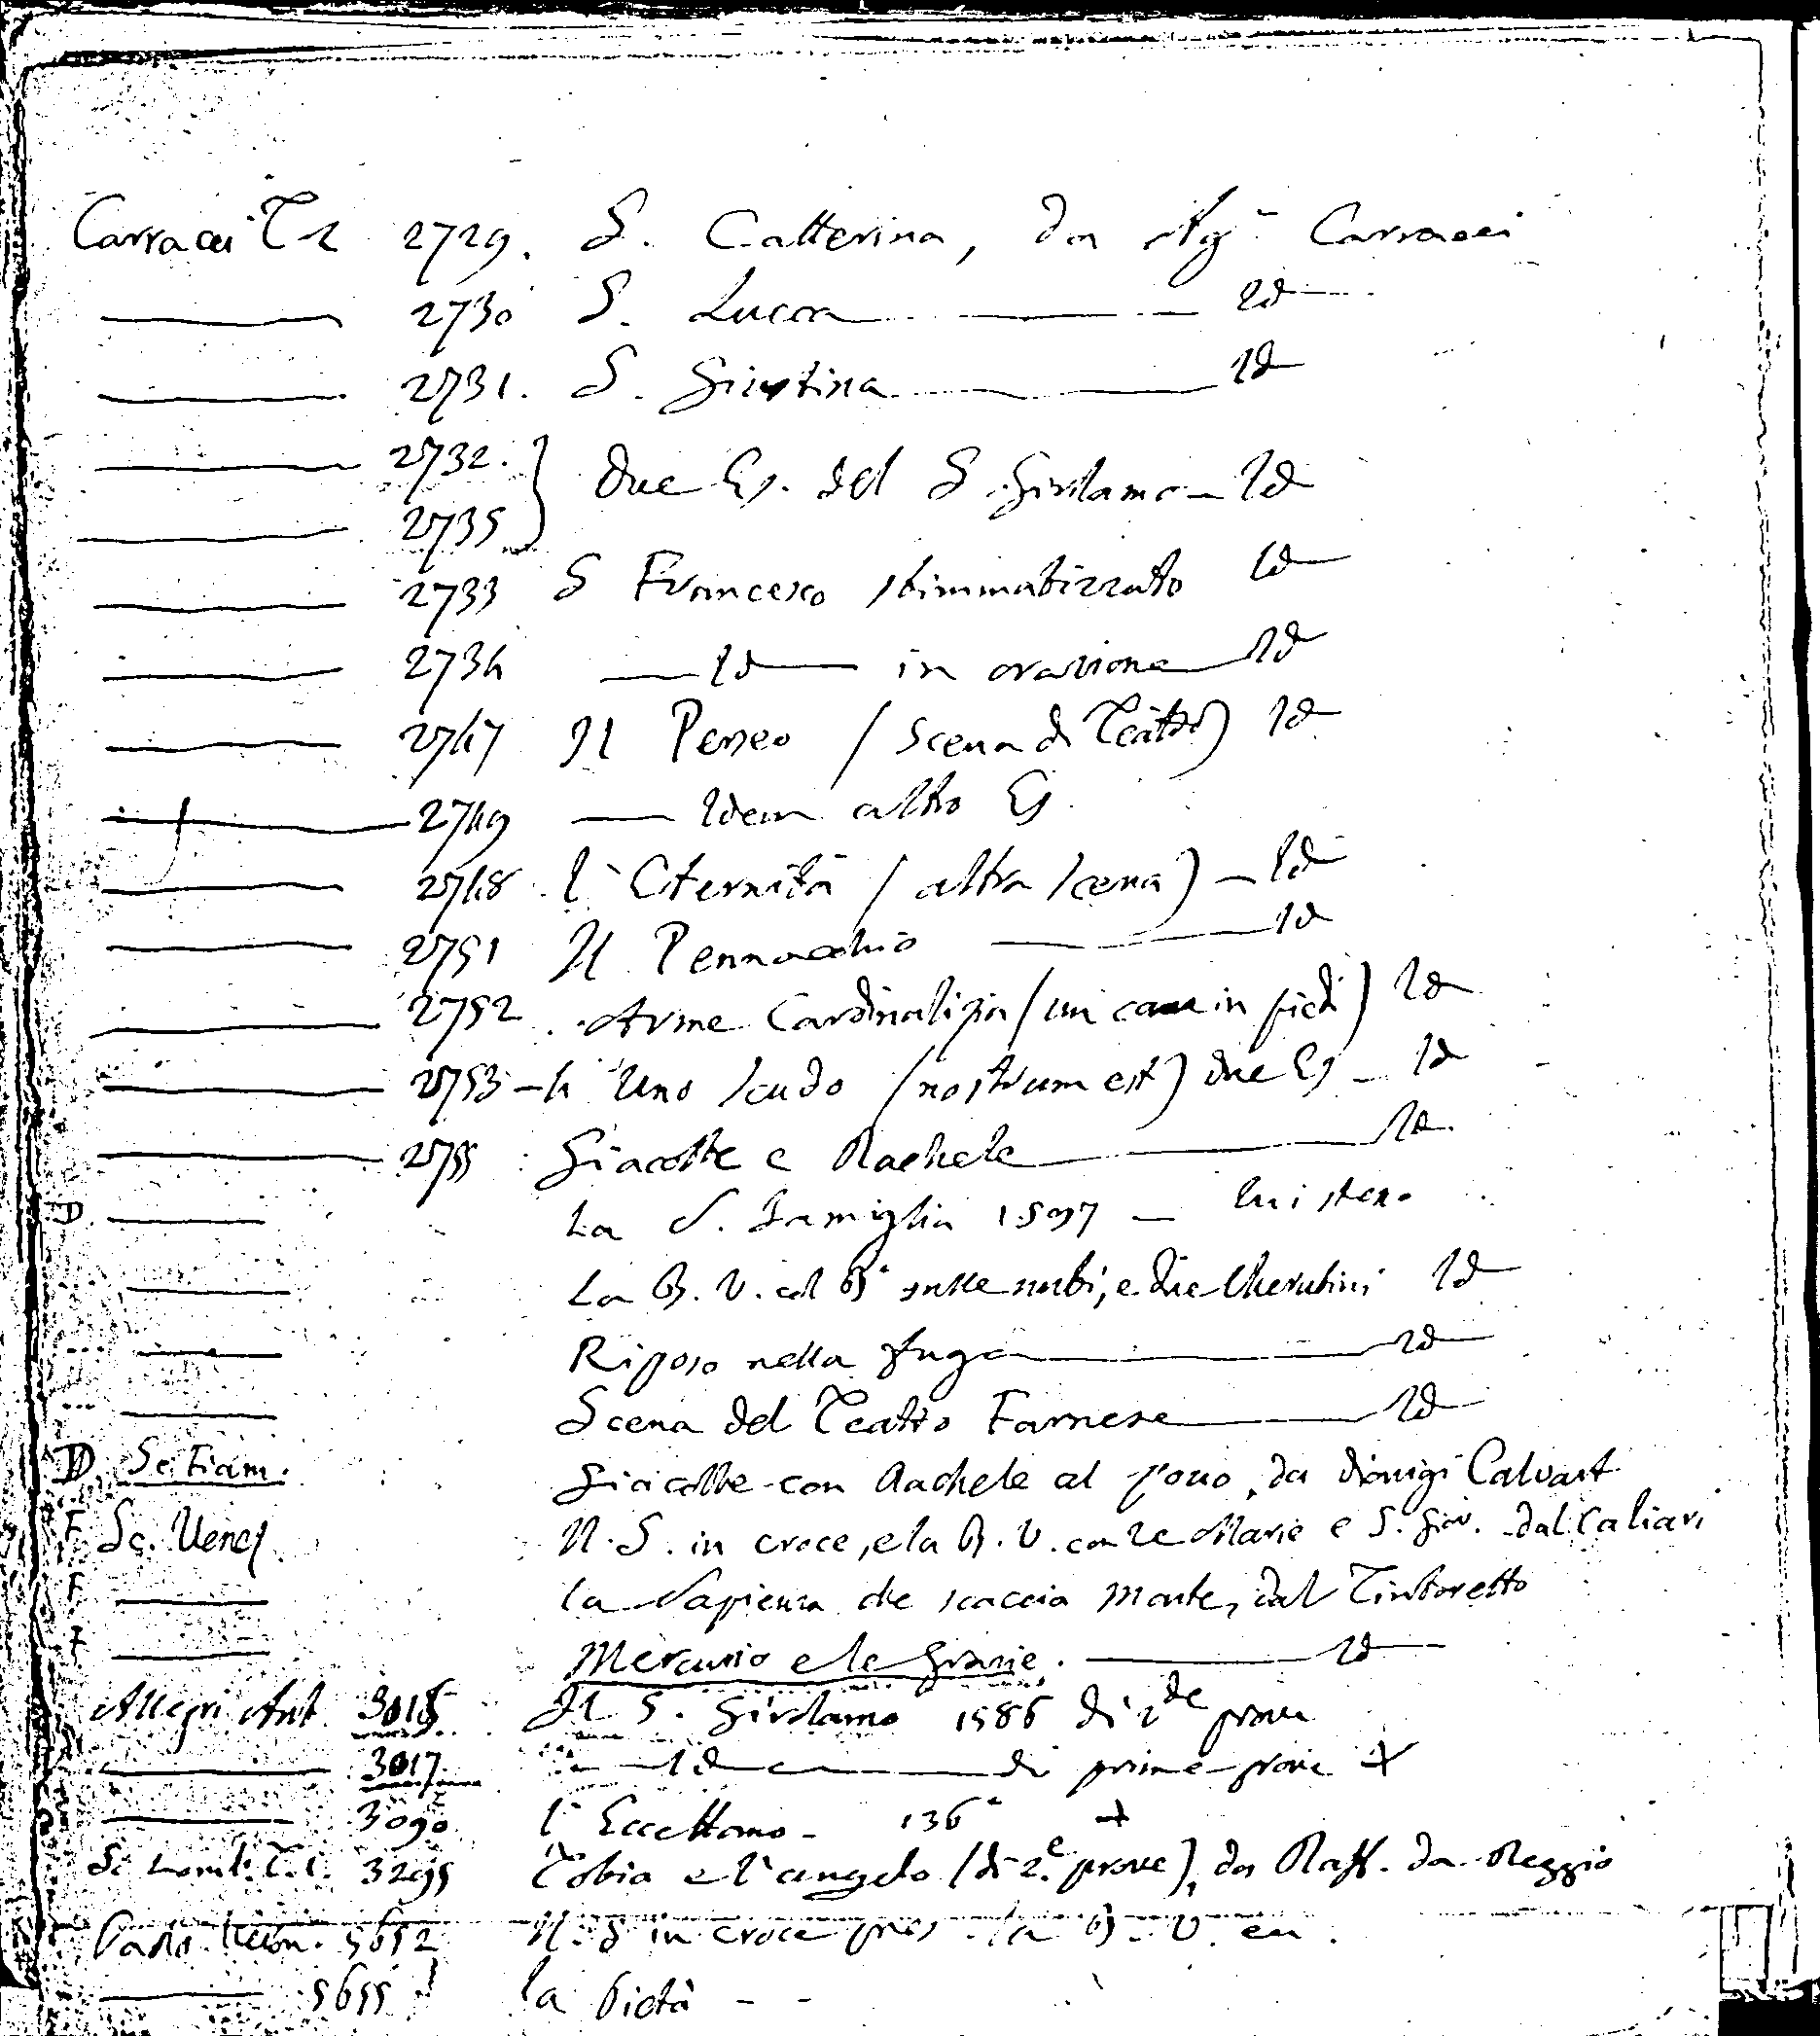 Carracci T. 2 2729. S. Catterina, da Ag. Carracci
2730 S. Lucia Id
2731. S. Giustina Id
2732. due Es. del S. Girolamo - Id
2735
2733 S Francesco stimmatizzato Id
2734 — Id — in orazione Id
2747 Il Perseo (Scena di Teatro) Id
2749 — Idem altro Es.
2748 l'Eternità (altra scena) - Id
2751 Il Pennacchio — Id
2752 Arme Cardinalizia (un cane in piedi) Id
2753-4 Uno scudo (nostrum est) due Es - Id
2755 Giacobbe e Rachele Id
D La S. Famiglia 1597 - lui stesso
La B. V. col B. sulle nubi, e due Cherubini Id
Riposo nella fuga Id
Scena del Teatro Farnese Id
D Sc. Fiam. Giacobbe con Rachele al pozzo, da Dionigi Calvart
F Sc. Venez. N. S. in croce, e la B. V. con le Marie e S. Giov. dal Caliari
F la Sapienza che scaccia Marte, dal Tintoretto
F Mercurio e le Grazie. Id
Allegri Ant. 3018 Il S. Girolamo 1586 di 2de prove
3017 — Id — di prime prove +
3090 l'Eccehomo - 136 +
Sc Lomb. T. 1. 3295 Tobia e l'angelo (di 2e prove), da Raff. da Reggio
5652 N. S in croce pres. la B. V. ea.
5655 la Pietà - -